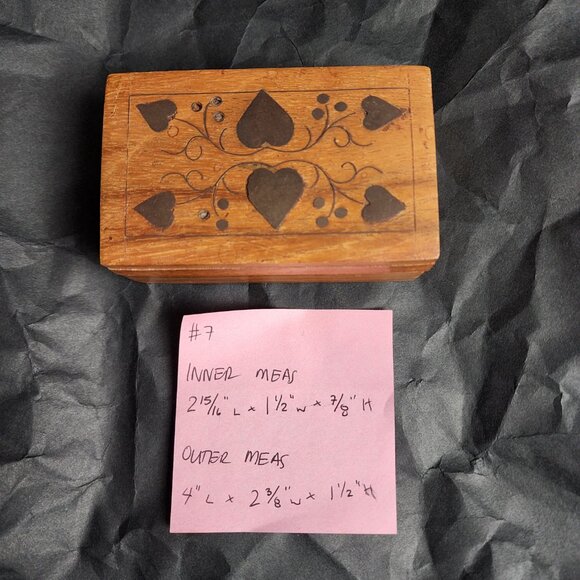 #7
INNER MEAS
2 15/16" L x 1 1/2" W x 7/8" H
OUTER MEAS
4" L x 2 3/8" W x 1 1/2" H